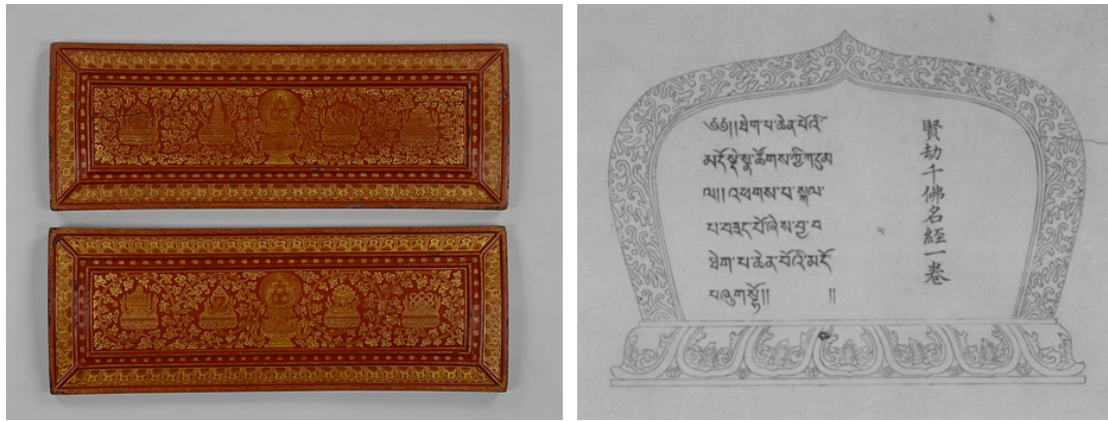 ༄༅།།ཐེག་པ་ཆེན་པོའི་
མདོ་སྡེ་སྣ་ཚོགས་ཀྱི་
ལ།།འཕགས་པ་སྐལ་
པ་བཟང་པོ་ཞེས་བྱ་བ
ཐེག་པ་ཆེན་པོའི་མདོ
བཞུགསྟོ།། །།
賢劫千佛名經一卷